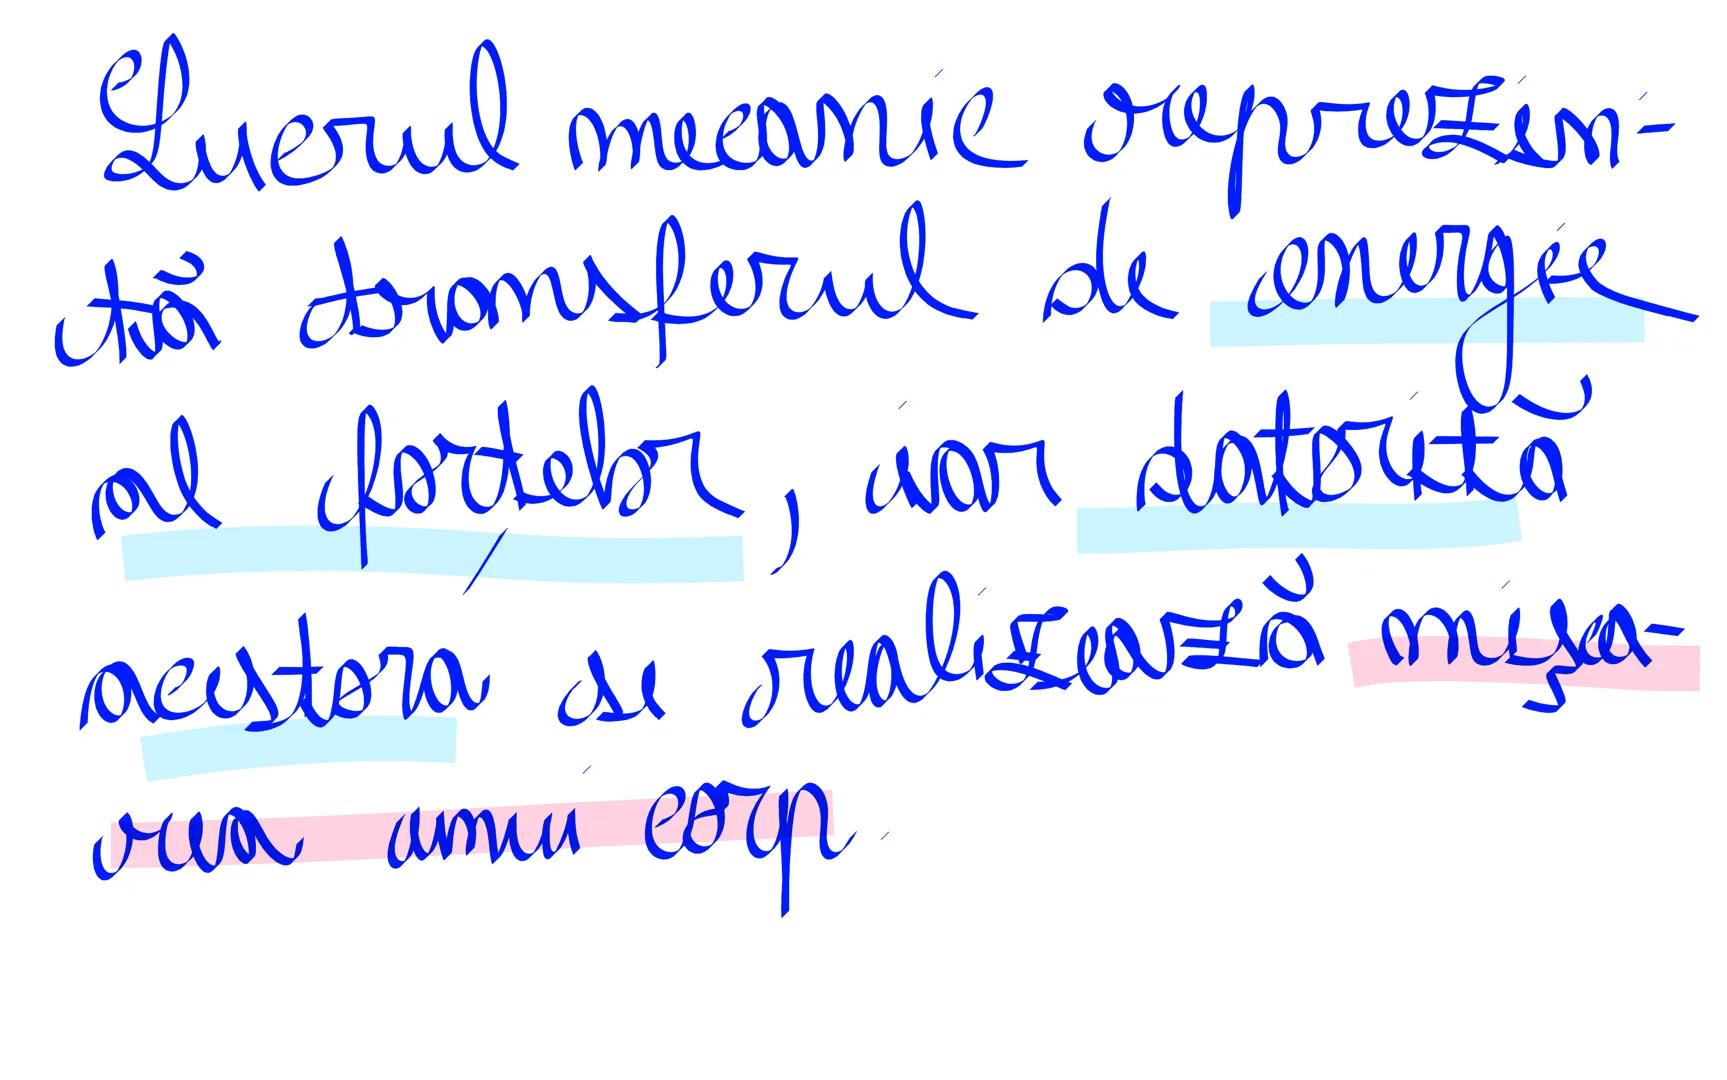 Lucrul mecanic reprezin-
tă transferul de energie
al forțelor, iar datorită
acestora se realizează mișca-
rea unui corp.